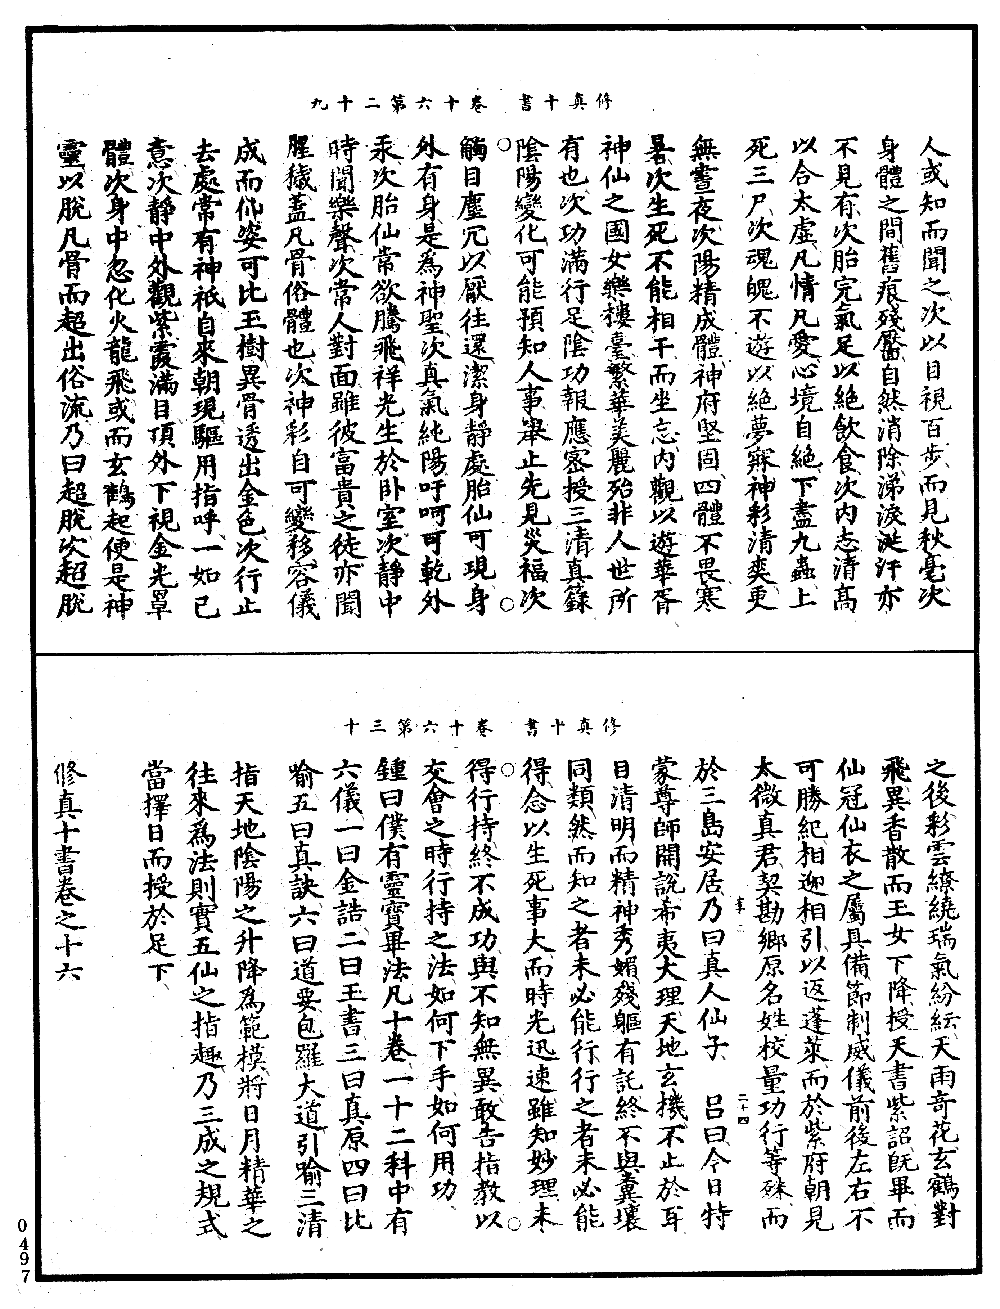 修真十書　卷十六第二十九
人或知而聞之次以目視百步而見秋毫次
身體之間舊痕殘靨自然消除涕淚涎汗亦
不見有次胎完氣足以絕飲食次內志清高
以合太虛凡情凡愛心境自絕下盡九蟲上
死三尸次魂魄不遊以絕夢寐神彩清爽更
無晝夜次陽精成體神府堅固四體不畏寒
暑次生死不能相干而坐忘內觀以遊華胥
神仙之國女樂樓臺繁華美麗殆非人世所
有也次功滿行足陰功報應密授三清真籙
陰陽變化可能預知人事舉止先見災福次
觸目塵冗以厭往還潔身靜處胎仙可現身
外有身是為神聖次真氣純陽吁呵可乾外
汞次胎仙常欲騰飛祥光生於臥室次靜中
時聞樂聲次常人對面雖彼富貴之徒亦聞
腥穢蓋凡骨俗體也次神彩自可變移容儀
成而仙姿可比玉樹異骨透出金色次行止
去處常有神祇自來朝現驅用指呼一如己
意次靜中外觀紫霞滿目頂外下視金光罩
體次身中忽化火龍飛或而玄鶴起便是神
靈以脫凡骨而超出俗流乃曰超脫次超脫
修真十書　卷十六第三十
之後彩雲繚繞瑞氣紛紜天雨奇花玄鶴對
飛異香散而玉女下降授天書紫詔既畢而
仙冠仙衣之屬具備節制威儀前後左右不
可勝紀相迎相引以返蓬萊而於紫府朝見
太微真君契勘鄉原名姓校量功行等殊而
於三島安居乃曰真人仙子　呂曰今日特
蒙尊師開說希夷大理天地玄機不止於耳
目清明而精神秀媚殘軀有託終不與糞壤
同類然而知之者未必能行行之者未必能
得念以生死事大而時光迅速雖知妙理未
得行持終不成功與不知無異敢告指教以
交會之時行持之法如何下手如何用功
鍾曰僕有靈寶畢法凡十卷一十二科中有
六儀一曰金誥二曰玉書三曰真原四曰比
喻五曰真訣六曰道要包羅大道引喻三清
指天地陰陽之升降為範模將日月精華之
往來為法則實五仙之指趣乃三成之規式
當擇日而授於足下
修真十書卷之十六
二十四
0497